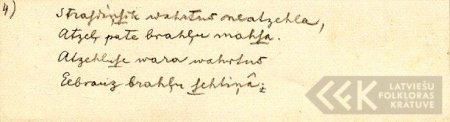 4) Strasdiņsik wahrtus neatzehla,
Atzeļ pate brahļu mahsa.
Atzehluse wara wahrtus
Eebrauz brahļu sehtiņâ;
LATVIEŠU
FOLKLORAS
KRATUVE